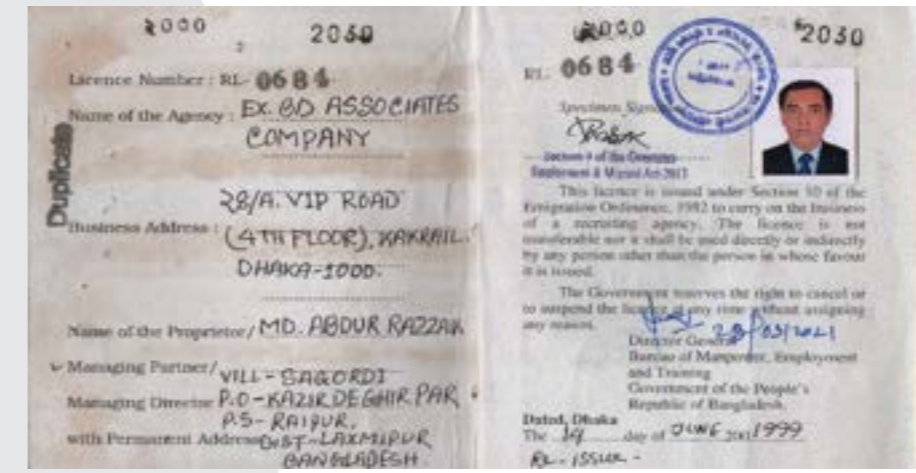 2000
2030
Licence Number : RL- 0684
Name of the Agency : EX. BD ASSOCIATES
COMPANY
Duplicate
28/A. VIP ROAD
Business Address : (4TH FLOOR), KAKRAIL.
DHAKA-1000.
Name of the Proprietor/ MD. ABDUR RAZZAK
Managing Partner/ VILL- SAGORDI
Managing Director P.O-KAZIR DEGHIR PAR
P.S- RAIPUR,
with Permanent Address DIST-LAXMIPUR
BANGLADESH.
2000
2030
RL. 0684
Specimen
Section 9 of the Overseas
Employment & Migrant Act-2013
This licence is issued under Section 10 of the
Emigration Ordinance, 1982 to carry on the business
of a recruiting agency. The licence is not
transferable nor it shall be used directly or indirectly
by any person other than the person in whose favour
it is issued.
The Government reserves the right to cancel or
to suspend the licence at any time without assigning
any reason.
28/03/2021
Director General
Bureau of Manpower, Employment
and Training
Government of the People's
Republic of Bangladesh.
Dated, Dhaka
The 14 day of JUNE 1999
RL- ISSUE -